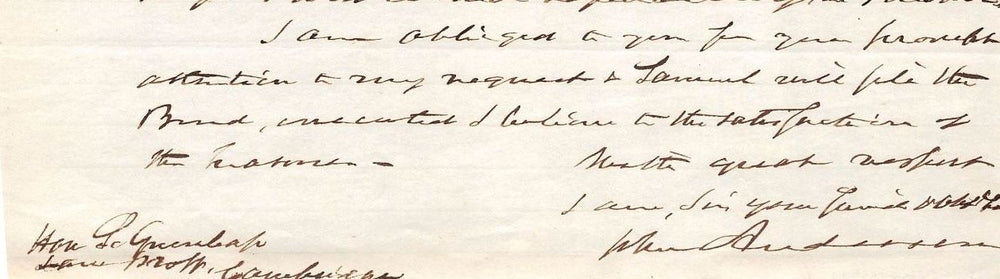 I am obliged to you for your prompt
attention to my request & Samuel will file the
Bond, executed I believe to the satisfaction of
the
With great respect
I am, Sir your friend & Obdt
John Anderson
Hon S. Greenleaf
Law Prof. Cambridge